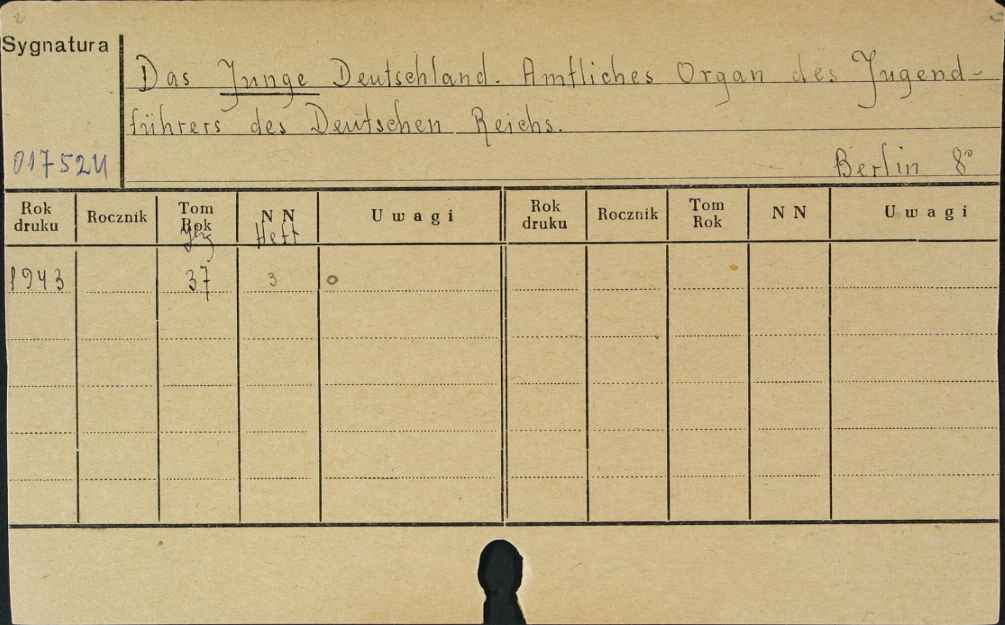 Sygnatura
Das Junge Deutschland. Amtliches Organ des Jugend-
führers des Deutschen Reichs.
017524
Berlin 8°
Rok druku Rocznik Tom Rok N N Uwagi Rok druku Rocznik Tom Rok N N Uwagi
Jg Heft
1943 37 3